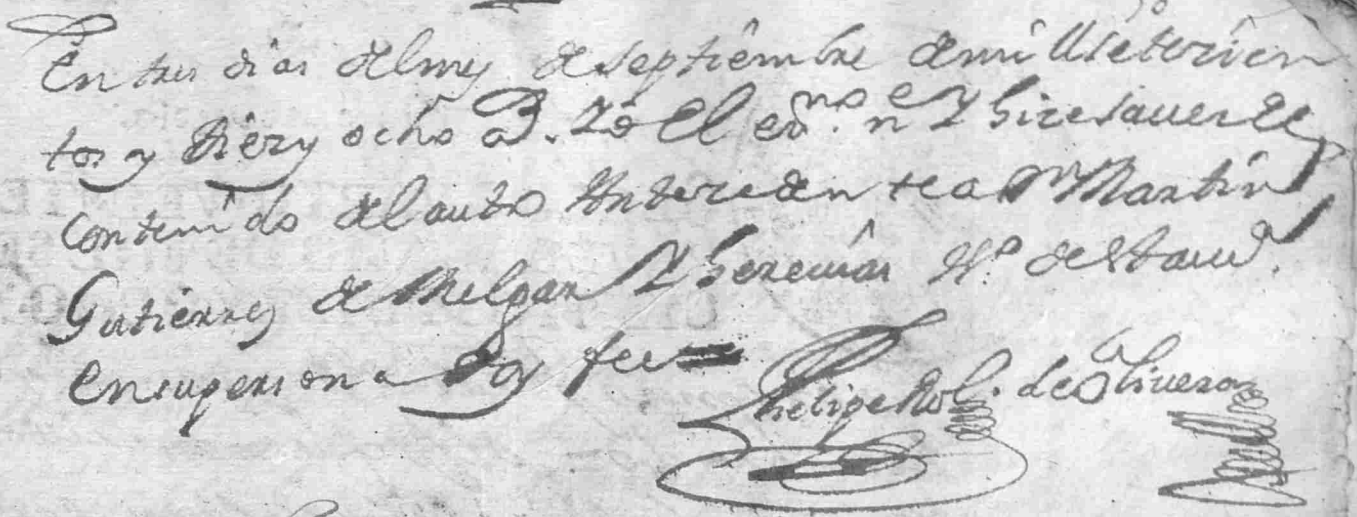 En tres dias del mes de septiembre de mill setecien
tos y diez y ocho a.s Yo el esno. ley e hice sauer el
contenido del auto Antecedente a Dn Martin
Gutierrez de Melgar Y herencias Vº de esta ciud.
en su persona doy fee =
Phelipe Rol. de la Oliuera